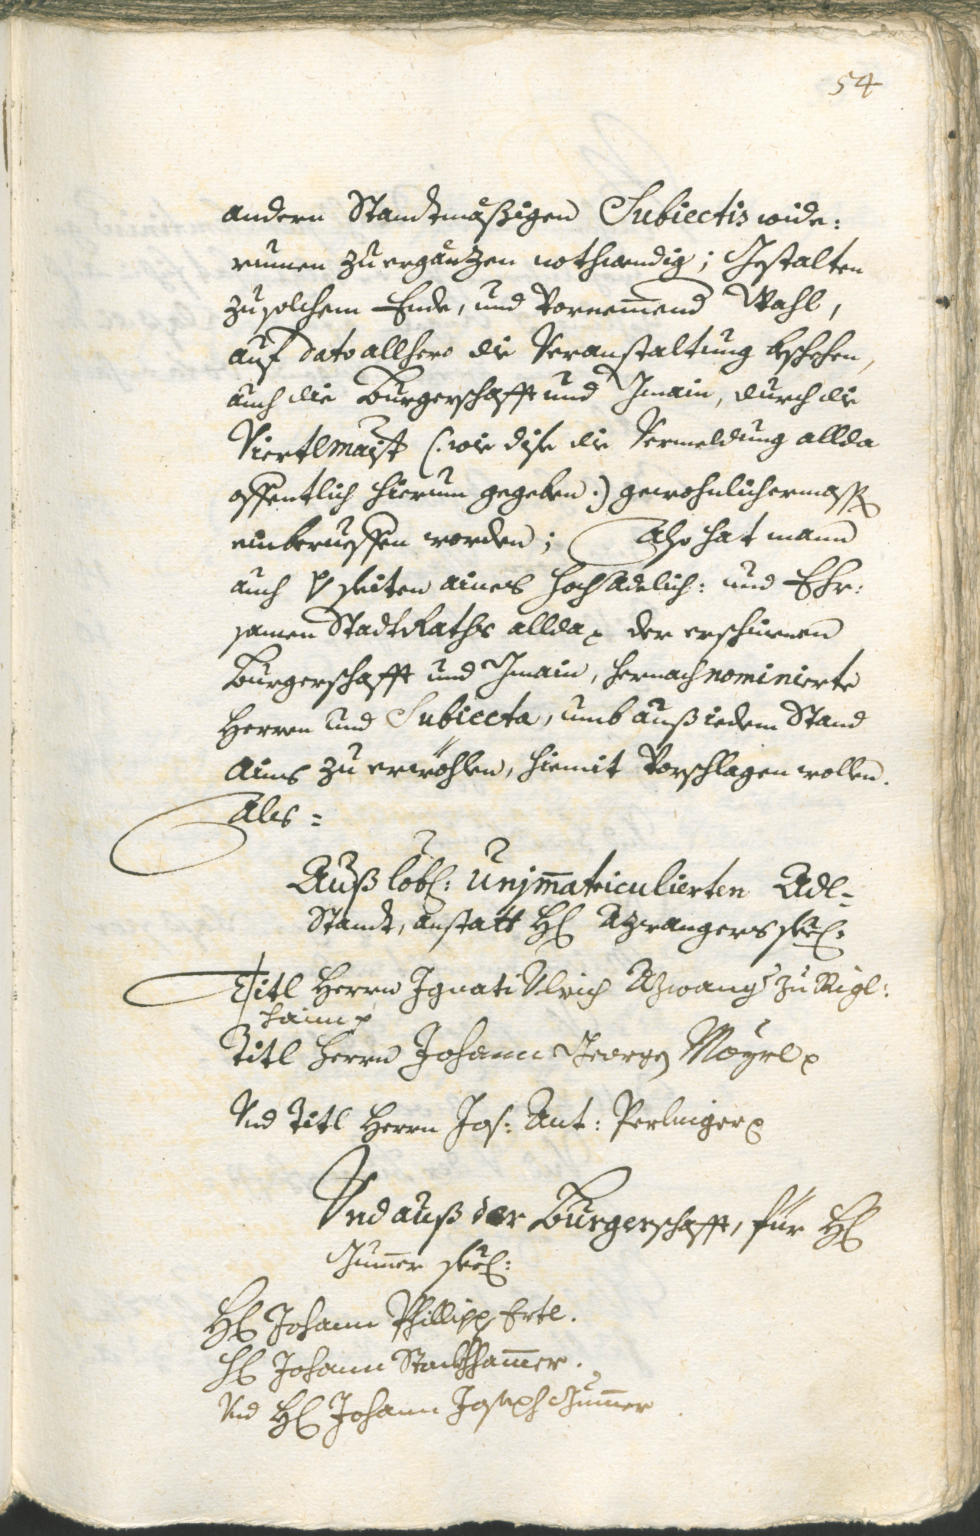 54
andern Standtmäßigen Subiectis wide:
rumen zu ergäntzen nothwendig; Gestalten
zu solchem Ende, und Vornemmend Wahl,
auf dato allhero die Veranstaltung beschehen,
auch die Burgerschafft und Gmain, durch die
Viertlmaist (: wie dise die Vermeldung allda
offentlich hierum gegeben :) gewohnlichermass
einberueffen worden; Also hat mann
auch seiten aines Hoch Adelich: und Ehr:
samen StadtRaths allda der erschinenen
Burgerschafft und Gmain, hernach nominierte
Herren und Subiecta, umb auß iedem Stand
Ains zu erwöhlen, hiemit Vorschlagen wollen.
Als =
Auß löbl: Unjm̄atriculierten Adl=
Standt, anstatt H Azwangers seel:
Titl Herrn Ignati Ulrich Azwang zu Rigl:
haim
Titl Herrn Johann Georg Mayrl
Und Titl Herrn Jos: Ant: Perlinger
Und auß der Burgerschafft, für H
Gum̄er seel:
H Johann Phillipp Ertl.
H Johann Stockham̄er.
Und H Johann Joseph Gum̄er